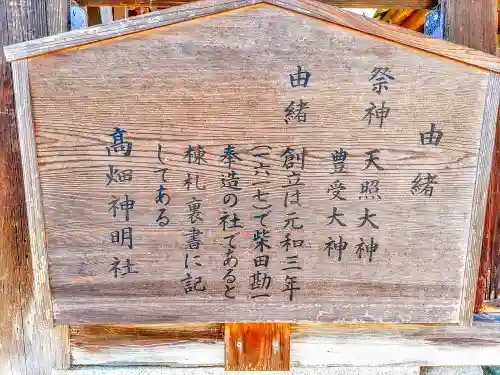 由緒
祭神 天照大神
豊受大神
由緒 創立は元和三年
(一六一七)で柴田勘一
奉造の社であると
棟札裏書に記
してある
高畑神明社